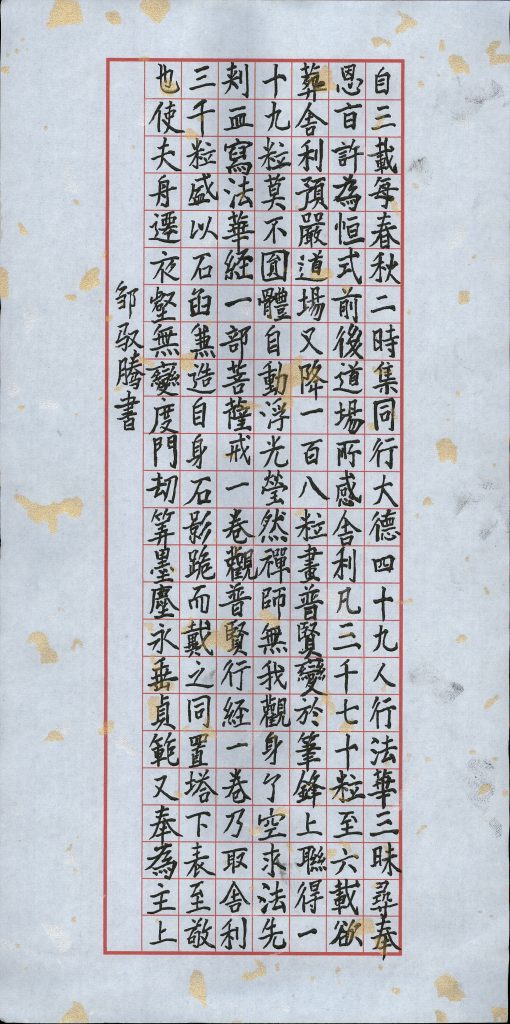 自三載每春秋二時集同行大德四十九人行法華三昧尋奉
恩旨許為恒式前後道場所感舍利凡三千七十粒至六載欲
葬舍利預嚴道場又降一百八粒畫普賢變於筆鋒上聯得一
十九粒莫不圓體自動浮光瑩然禪師無我觀身了空求法先
刺血寫法華經一部菩薩戒一卷觀普賢行經一卷乃取舍利
三千粒盛以石函兼造自身石影跪而戴之同置塔下表至敬
也使夫舟遷夜壑無變度門劫筭墨塵永垂貞範又奉為主上
邹驭腾書